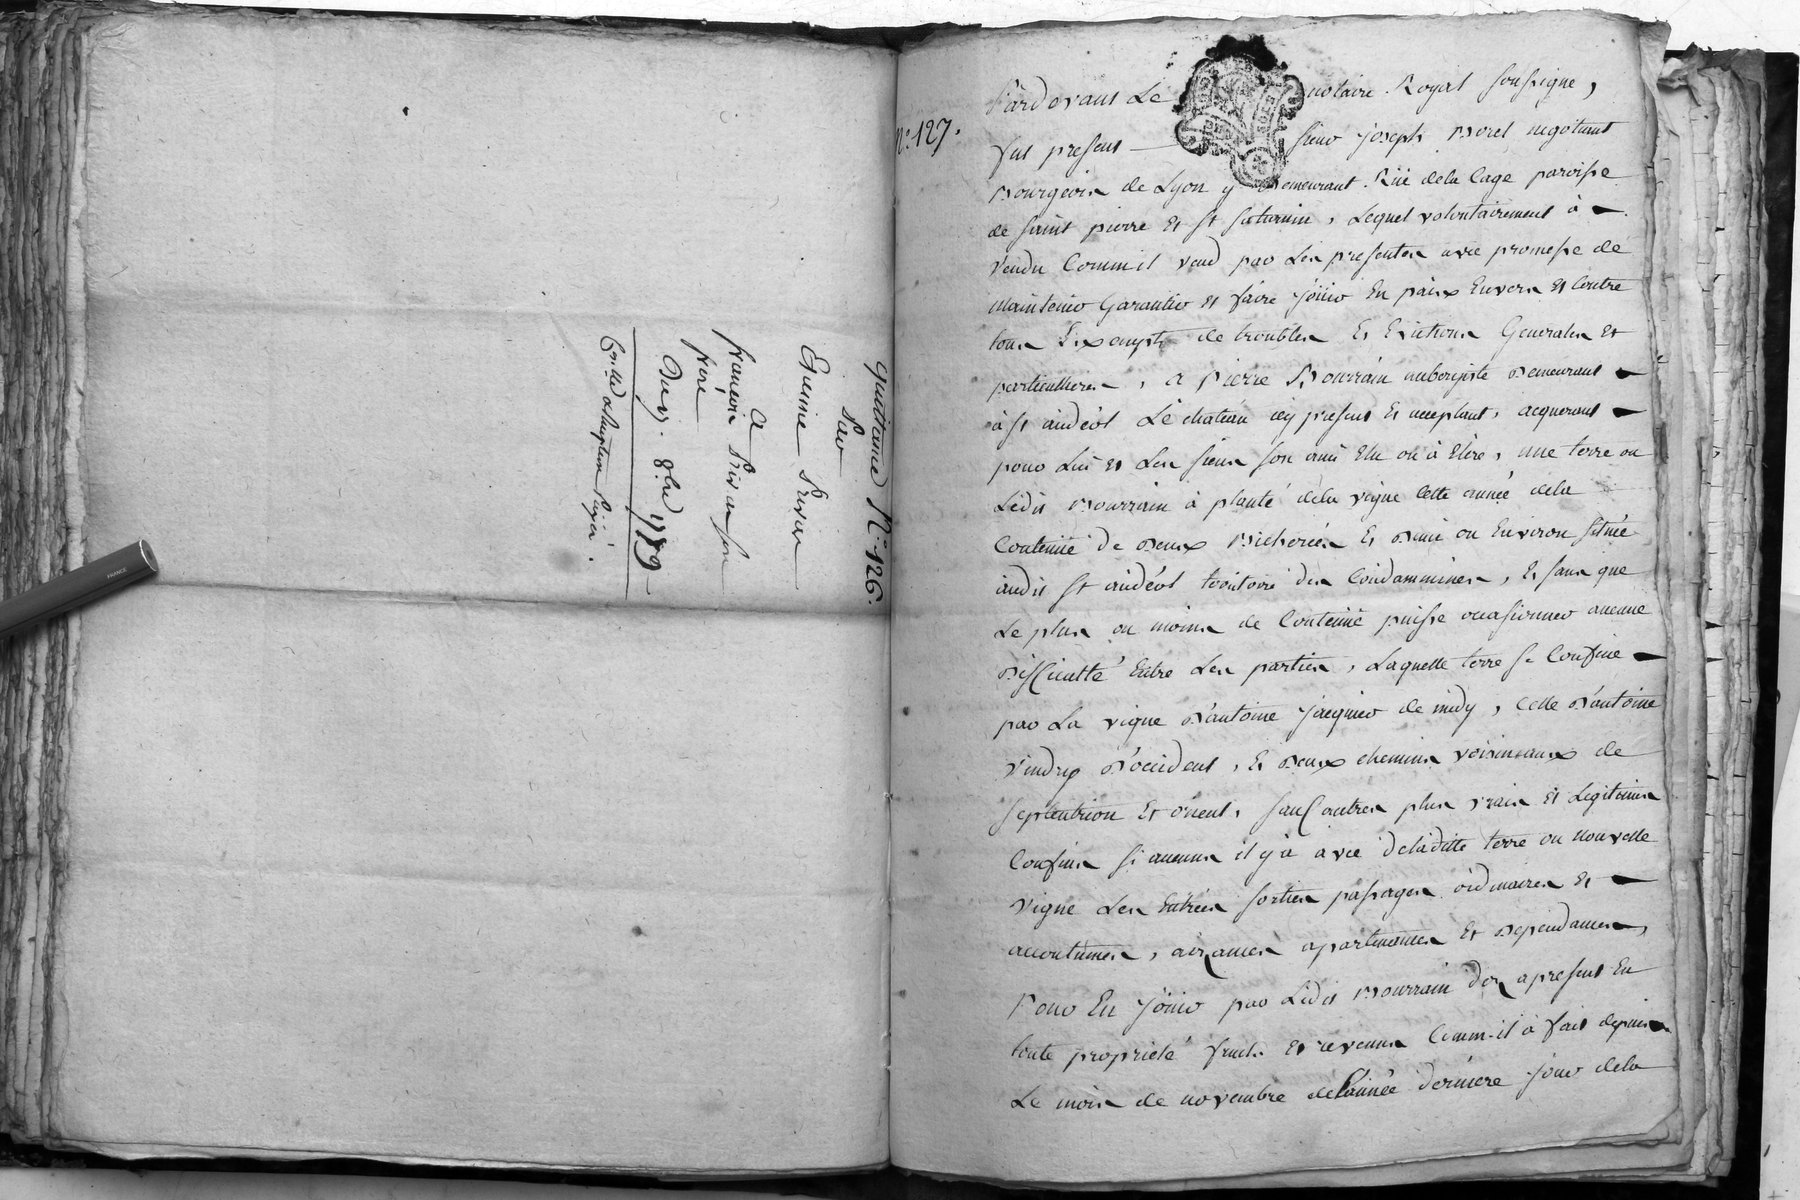 Quittance N.° 126.
par
Etienne Privat
a
francois Privat son
frere
Du 9. 8bre 1789
N.° 127.
Pardevant Le notaire Royal soussigné,
fut present sieur joseph Morel negotiant
Bourgeois de Lyon y Demeurant Rüe dela Cage paroisse
de saint pierre et st saturnin, Lequel volontairement à
vendu Comm'il vend par Les presentes avec promesse de
maintenir Garantir et faire joüir En paix Envers et Contre
tous Exempte de troubles Et Evictions Generales et
particulieres, a pierre Mourrain aubergiste Demeurant
à st andéol Le chateau icy present Et acceptant, acquerant
pour Lui et Les siens son ami Elu ou à Elire, une terre ou
Ledit Mourrain à planté déla vigne Cette année dela
Contenüe De Deux Bicherées Et Demi ou Environ située
audit st andéol territoire des Condammines, Et sans que
Le plus ou moins de Contenüe puisse occasionner aucune
Difficulté Entre Les parties, Laquelle terre se Confine
par La vigne D'antoine jacquier de midy, Celle D'antoine
Vindry D'occident, Et Deux chemins voisinaux de
septentrion Et orient, sauf autres plus vrais Et Legitimes
Confins si aucuns il y à avec deladitte terre ou nouvelle
vigne Les Entrées sorties passages ordinaires Et
accoutumés, aizances apartenances Et Dependances,
Pour En joüir par Ledit Mourrain dez apresent En
toute proprieté fruits Et revenus Comm-il à fait depuis
Le mois de novembre delannée derniere jour dela